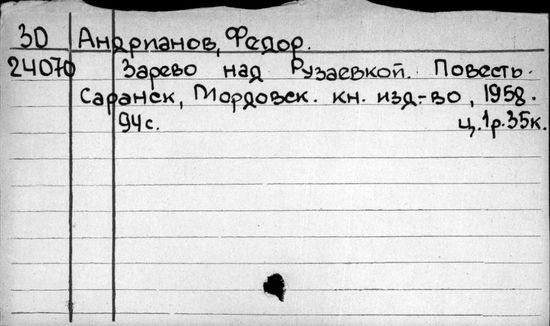 30 Андрианов, Федор.
24070 Зарево над Рузаевкой. Повесть.
Саранск, Мордовск. кн. изд-во, 1958.
94с. ц.1р.35к.